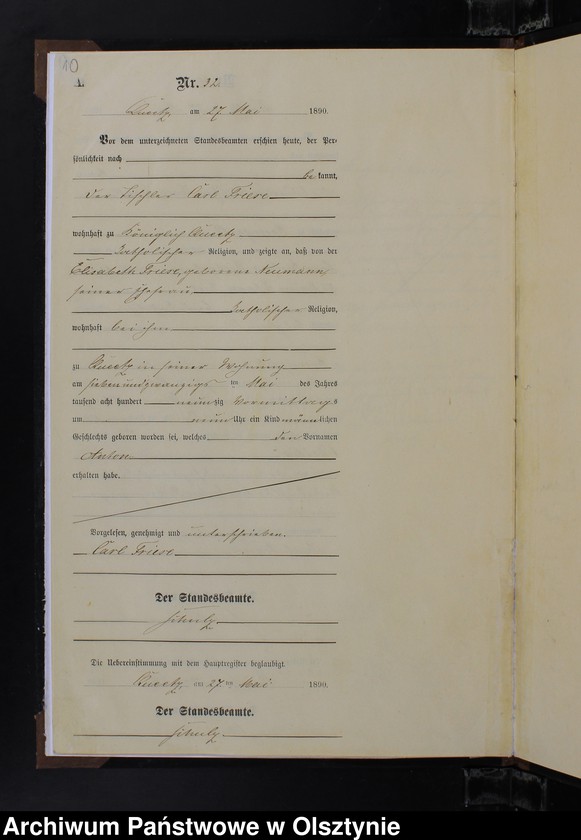 10
A.
Nr. 32.
Queetz am 27 Mai 1890.
Vor dem unterzeichneten Standesbeamten erschien heute, der Per-
sönlichkeit nach
be kannt,
der Tischler Carl Friese
wohnhaft zu Königlich Queetz
katholischer Religion, und zeigte an, daß von der
Elisabeth Friese, geborene Neumann
seiner Ehefrau
katholischer Religion,
wohnhaft bei ihm
zu Queetz in seiner Wohnung
am siebenundzwanzigs ten Mai des Jahres
tausend acht hundert neun zig Vormittags
um neun Uhr ein Kind männlichen
Geschlechts geboren worden sei, welches den Vornamen
Anton
erhalten habe.
Vorgelesen, genehmigt und unterschrieben.
Carl Friese
Der Standesbeamte.
Schulz
Die Uebereinstimmung mit dem Hauptregister beglaubigt.
Queetz am 27. ten Mai 1890.
Der Standesbeamte.
Schulz
Archiwum Państwowe w Olsztynie